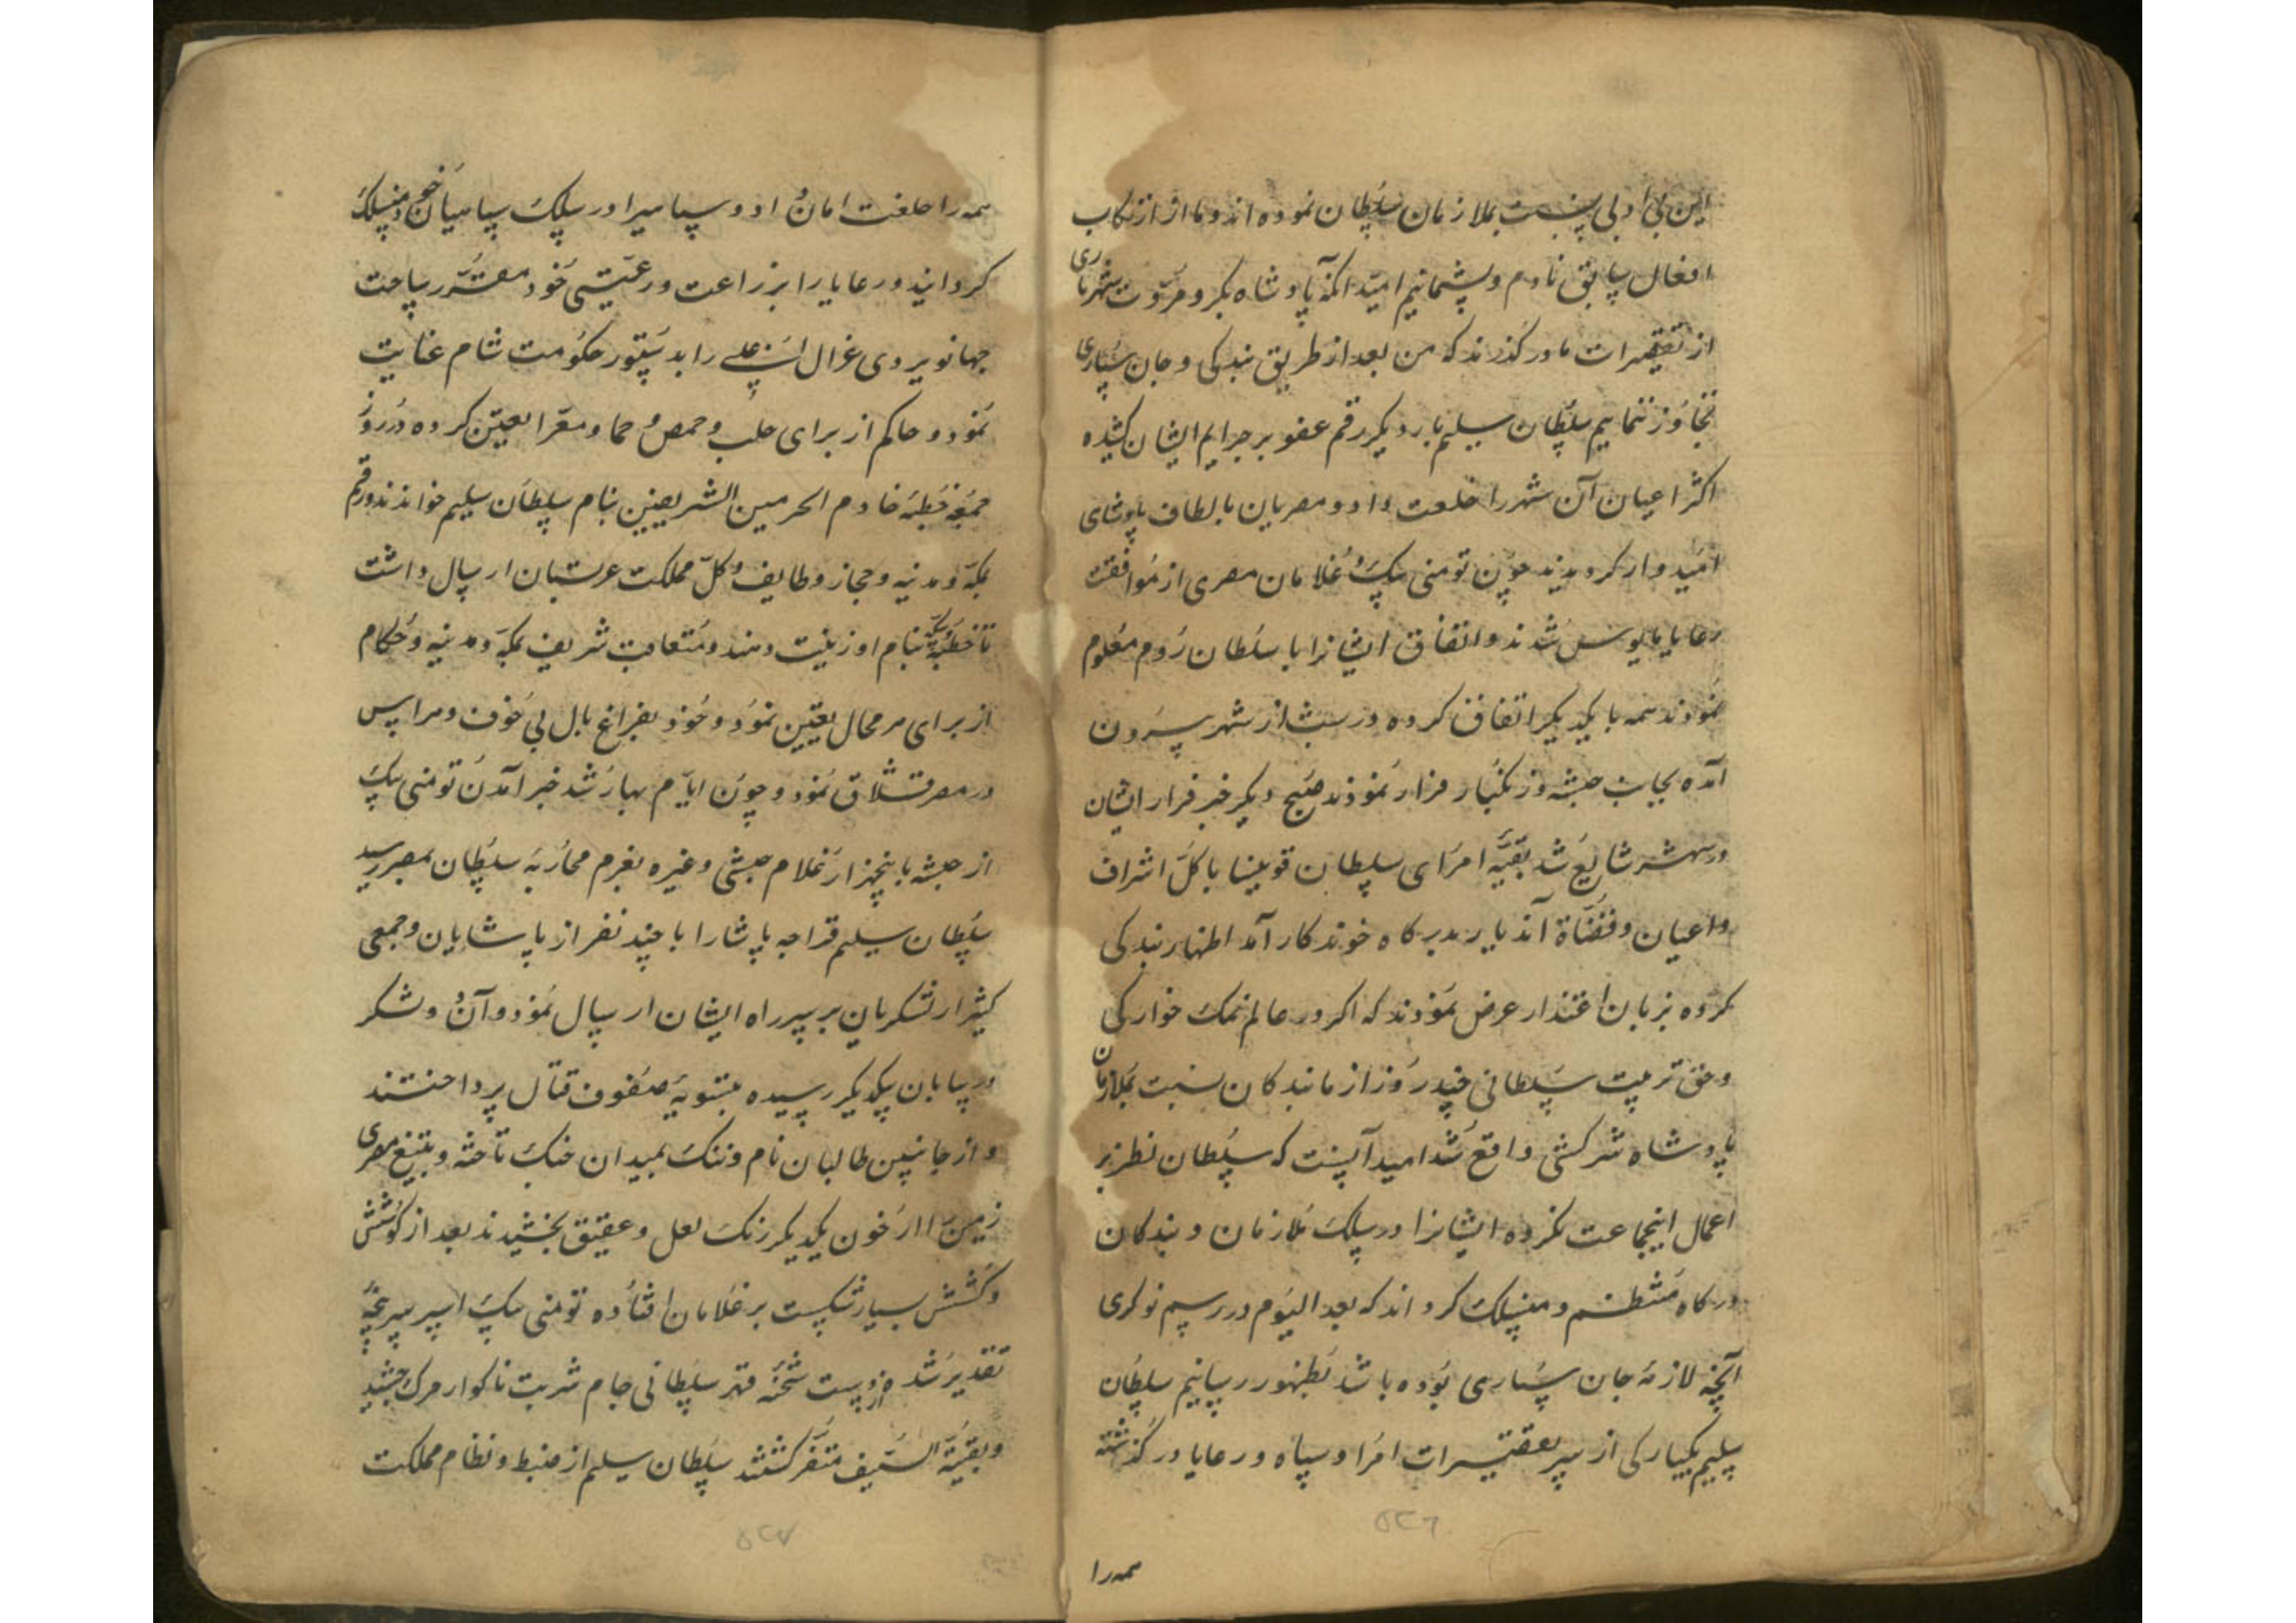 این بی ادبی نسبت بملازمان سلطان نموده اند و ما از ارتکاب
افعال سابق نادم و پشیمانیم امید آنکه پادشاه بکرم و مروت شهریاری
از تقصیرات ما در کذرند که من بعد از طریق بندکی و جان سپاری
تجاوز ننماییم سلطان سلیم بار دیکر رقم عفو بر جرایم ایشان کشیده
اکثر اعیان آن شهر را خلعت داد و مصریان بالطاف پادشاهی
امیدوار کردیدند چون تومنی بیک و غلامان مصری از موافقت
رعایا مایوس شدند و اتفاق ایشانرا با سلطان روم معلوم
نمودند همه با یکدیکر اتفاق کرده در شب از شهر بیرون
آمده بجانب حبشه و زنکبار فرار نمودند صبح دیکر خبر فرار ایشان
در شهر شایع شد بقیه امرای سلطان قوینسا با کل اشراف
و اعیان و قضاة آن دیار بدرکاه خوندکار آمد اظهار بندکی
کرده بزبان اعتذار عرض نمودند که اکر در عالم نمک خوارکی
و حق تربیت سلطانی چند روز از ما بندکان نسبت بملازمان
پادشاه سرکشی واقع شد امید آنست که سلطان نظر بر
اعمال اینجماعت نکرده ایشانرا در سلک ملازمان و بندکان
درکاه منتظم و منسلک کرداند که بعد الیوم در رسم نوکری
آنچه لازمه جان سپاری بوده باشد بظهور رسانیم سلطان
سلیم یکبارکی از سر تقصیرات امرا و سپاه و رعایا در کذشته
همه را
همه را خلعت امان داد و سپاهیرا در سلک سپاهیان خود منسلک
کردانید و رعایا را بزراعت و رعیتی خود مقرر ساخت
جهانو بردی غزال اسن علی را بدستور حکومت شام عنایت
نمود و حاکم از برای حلب و حمص و حما و معرا تعین کرده در روز
جمعه خطبه خادم الحرمین الشریفین بنام سلطان سلیم خواندند و رقم
بمکه و مدینه و حجاز و طایف و کل مملکت عربستان ارسال داشت
تا خطبه و سکه بنام او زینت دهند و متعاقب شریف بمکه و مدینه و حکام
از برای هر محال تعین نمود و خود بفراغ بال بی خوف و هراس
در مصر قشلاق نمود و چون ایام بهار شد خبر آمدن تومنی بیک
از حبشه با پنجهزار غلام حبشی و غیره بعزم محاربه سلطان بمصر رسید
سلطان سلیم قراجه پاشا را با چند نفر از پاشایان و جمعی
کثیر از لشکریان بر سر راه ایشان ارسال نمود و آن دو لشکر
در بیابان بیکدیکر رسیده بتسویه صفوف قتال پرداختند
و از جانبین طالبان نام و ننک بمیدان جنک تاخته و بتیغ مصری
زمین را از خون یکدیکر رنک لعل و عقیق بخشیدند بعد از کوشش
و کشش بسیار شکست بر غلامان افتاده تومنی بیک اسیر سر پنجه
تقدیر شد و از دست شحنه قهر سلطانی جام شربت ناکوار مرک چشید
و بقیة السیف متفرق کشتند سلطان سلیم از ضبط و نظام مملکت